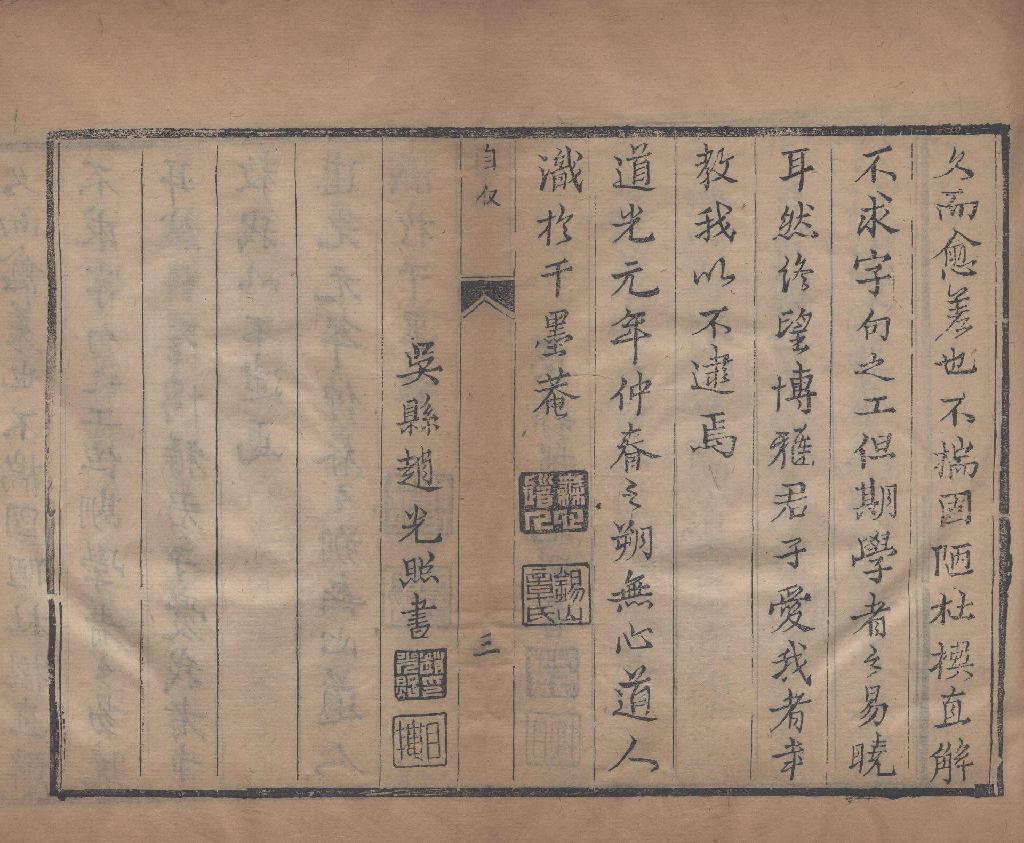 久而愈差也不揣固陋杜撰直解
不求字句之工但期學者之易曉
耳然終望博雅君子愛我者幸
教我以不逮焉
道光元年仲春之朔無心道人
識於千墨菴
錫山章氏
自叙
三
吳縣趙光照書